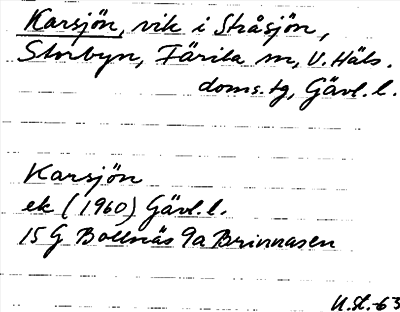 Karsjön, vik i Stråsjön,
Storbyn, Färila sn, V. Häls.
doms.tg, Gävl. l.
Karsjön
ek (1960) Gävl. l.
15 G Bollnäs 9a Brinnåsen
U.st.-63